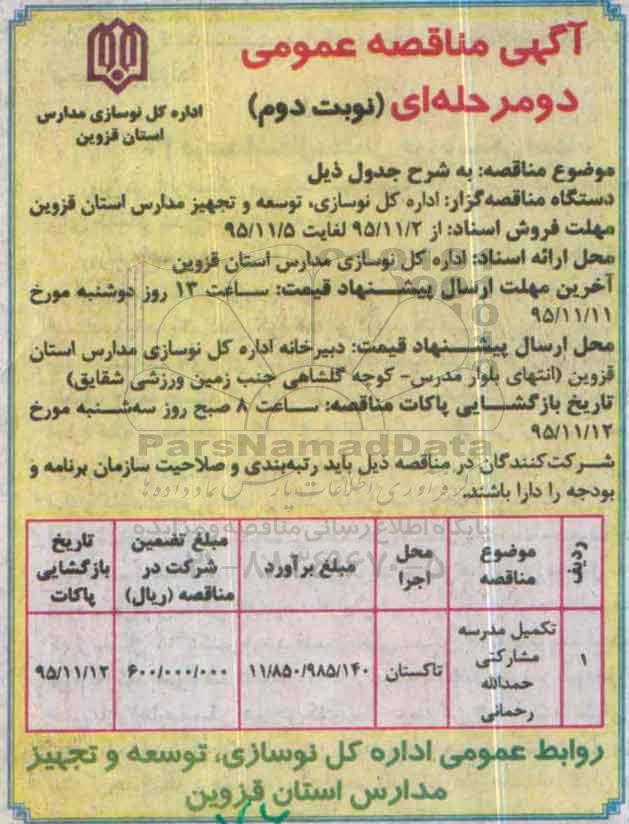 آگهی مناقصه عمومی
دومرحله‌ای (نوبت دوم)
اداره کل نوسازی مدارس
استان قزوین
موضوع مناقصه: به شرح جدول ذیل
دستگاه مناقصه‌گزار: اداره کل نوسازی، توسعه و تجهیز مدارس استان قزوین
مهلت فروش اسناد: از ۹۵/۱۱/۲ لغایت ۹۵/۱۱/۵
محل ارائه اسناد: اداره کل نوسازی مدارس استان قزوین
آخرین مهلت ارسال پیشنهاد قیمت: ساعت ۱۳ روز دوشنبه مورخ
۹۵/۱۱/۱۱
محل ارسال پیشنهاد قیمت: دبیرخانه اداره کل نوسازی مدارس استان
قزوین (انتهای بلوار مدرس- کوچه گلشاهی جنب زمین ورزشی شقایق)
تاریخ بازگشایی پاکات مناقصه: ساعت ۸ صبح روز سه‌شنبه مورخ
۹۵/۱۱/۱۲
ParsNamadData
شرکت‌کنندگان در مناقصه ذیل باید رتبه‌بندی و صلاحیت سازمان برنامه و
بودجه را دارا باشند.
پایگاه اطلاع رسانی مناقصه و مزایده
ردیف
موضوع مناقصه
محل اجرا
مبلغ برآورد
مبلغ تضمین شرکت در مناقصه (ریال)
تاریخ بازگشایی پاکات
۱
تکمیل مدرسه
مشارکتی
حمدالله
رحمانی
تاکستان
۱۱/۸۵۰/۹۸۵/۱۴۰
۶۰۰/۰۰۰/۰۰۰
۹۵/۱۱/۱۲
روابط عمومی اداره کل نوسازی، توسعه و تجهیز
مدارس استان قزوین